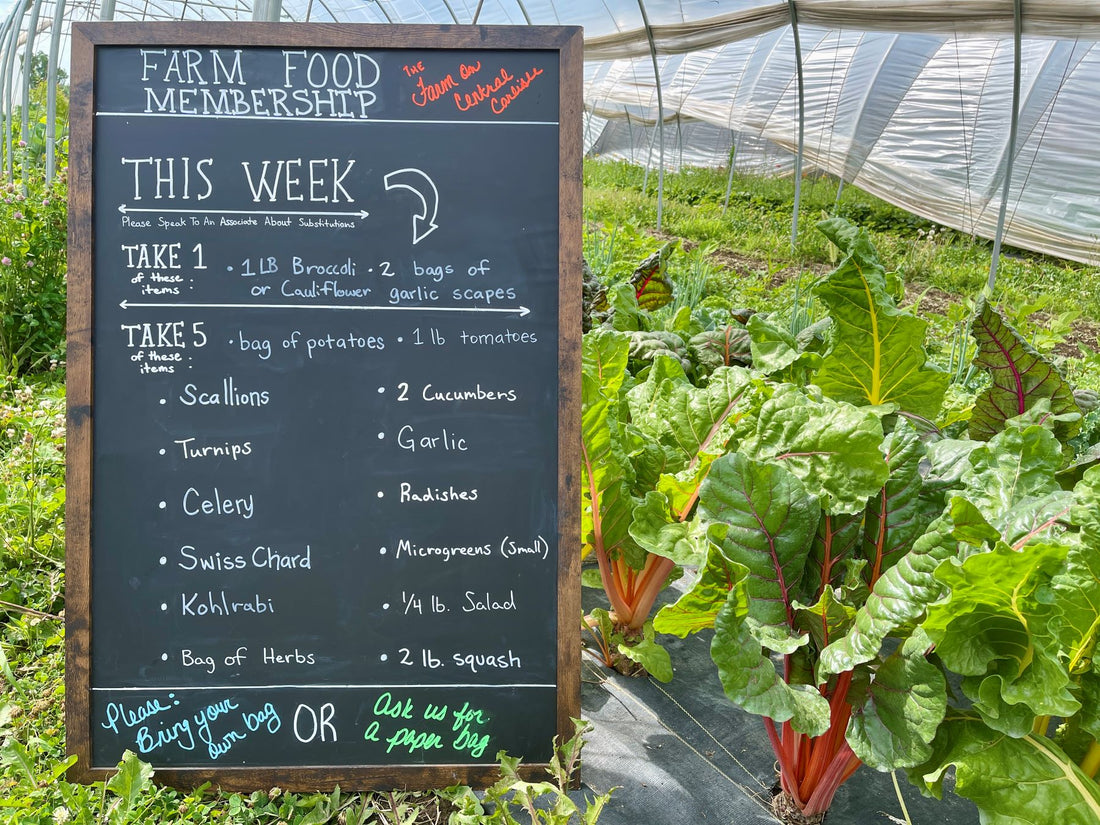 FARM FOOD
MEMBERSHIP
THE
Farm On
Central
Carlisle
THIS WEEK
Please Speak To An Associate About Substitutions
TAKE 1
of these
items :
• 1 LB Broccoli
or Cauliflower
• 2 bags of
garlic scapes
TAKE 5
of these
items :
• bag of potatoes • 1 lb tomatoes
• Scallions
• 2 Cucumbers
• Turnips
• Garlic
• Celery
• Radishes
• Swiss Chard
• Microgreens (Small)
• Kohlrabi
• 1/4 lb. Salad
• Bag of Herbs
• 2 lb. squash
Please:
Bring your
own bag
OR
Ask us for
a paper bag